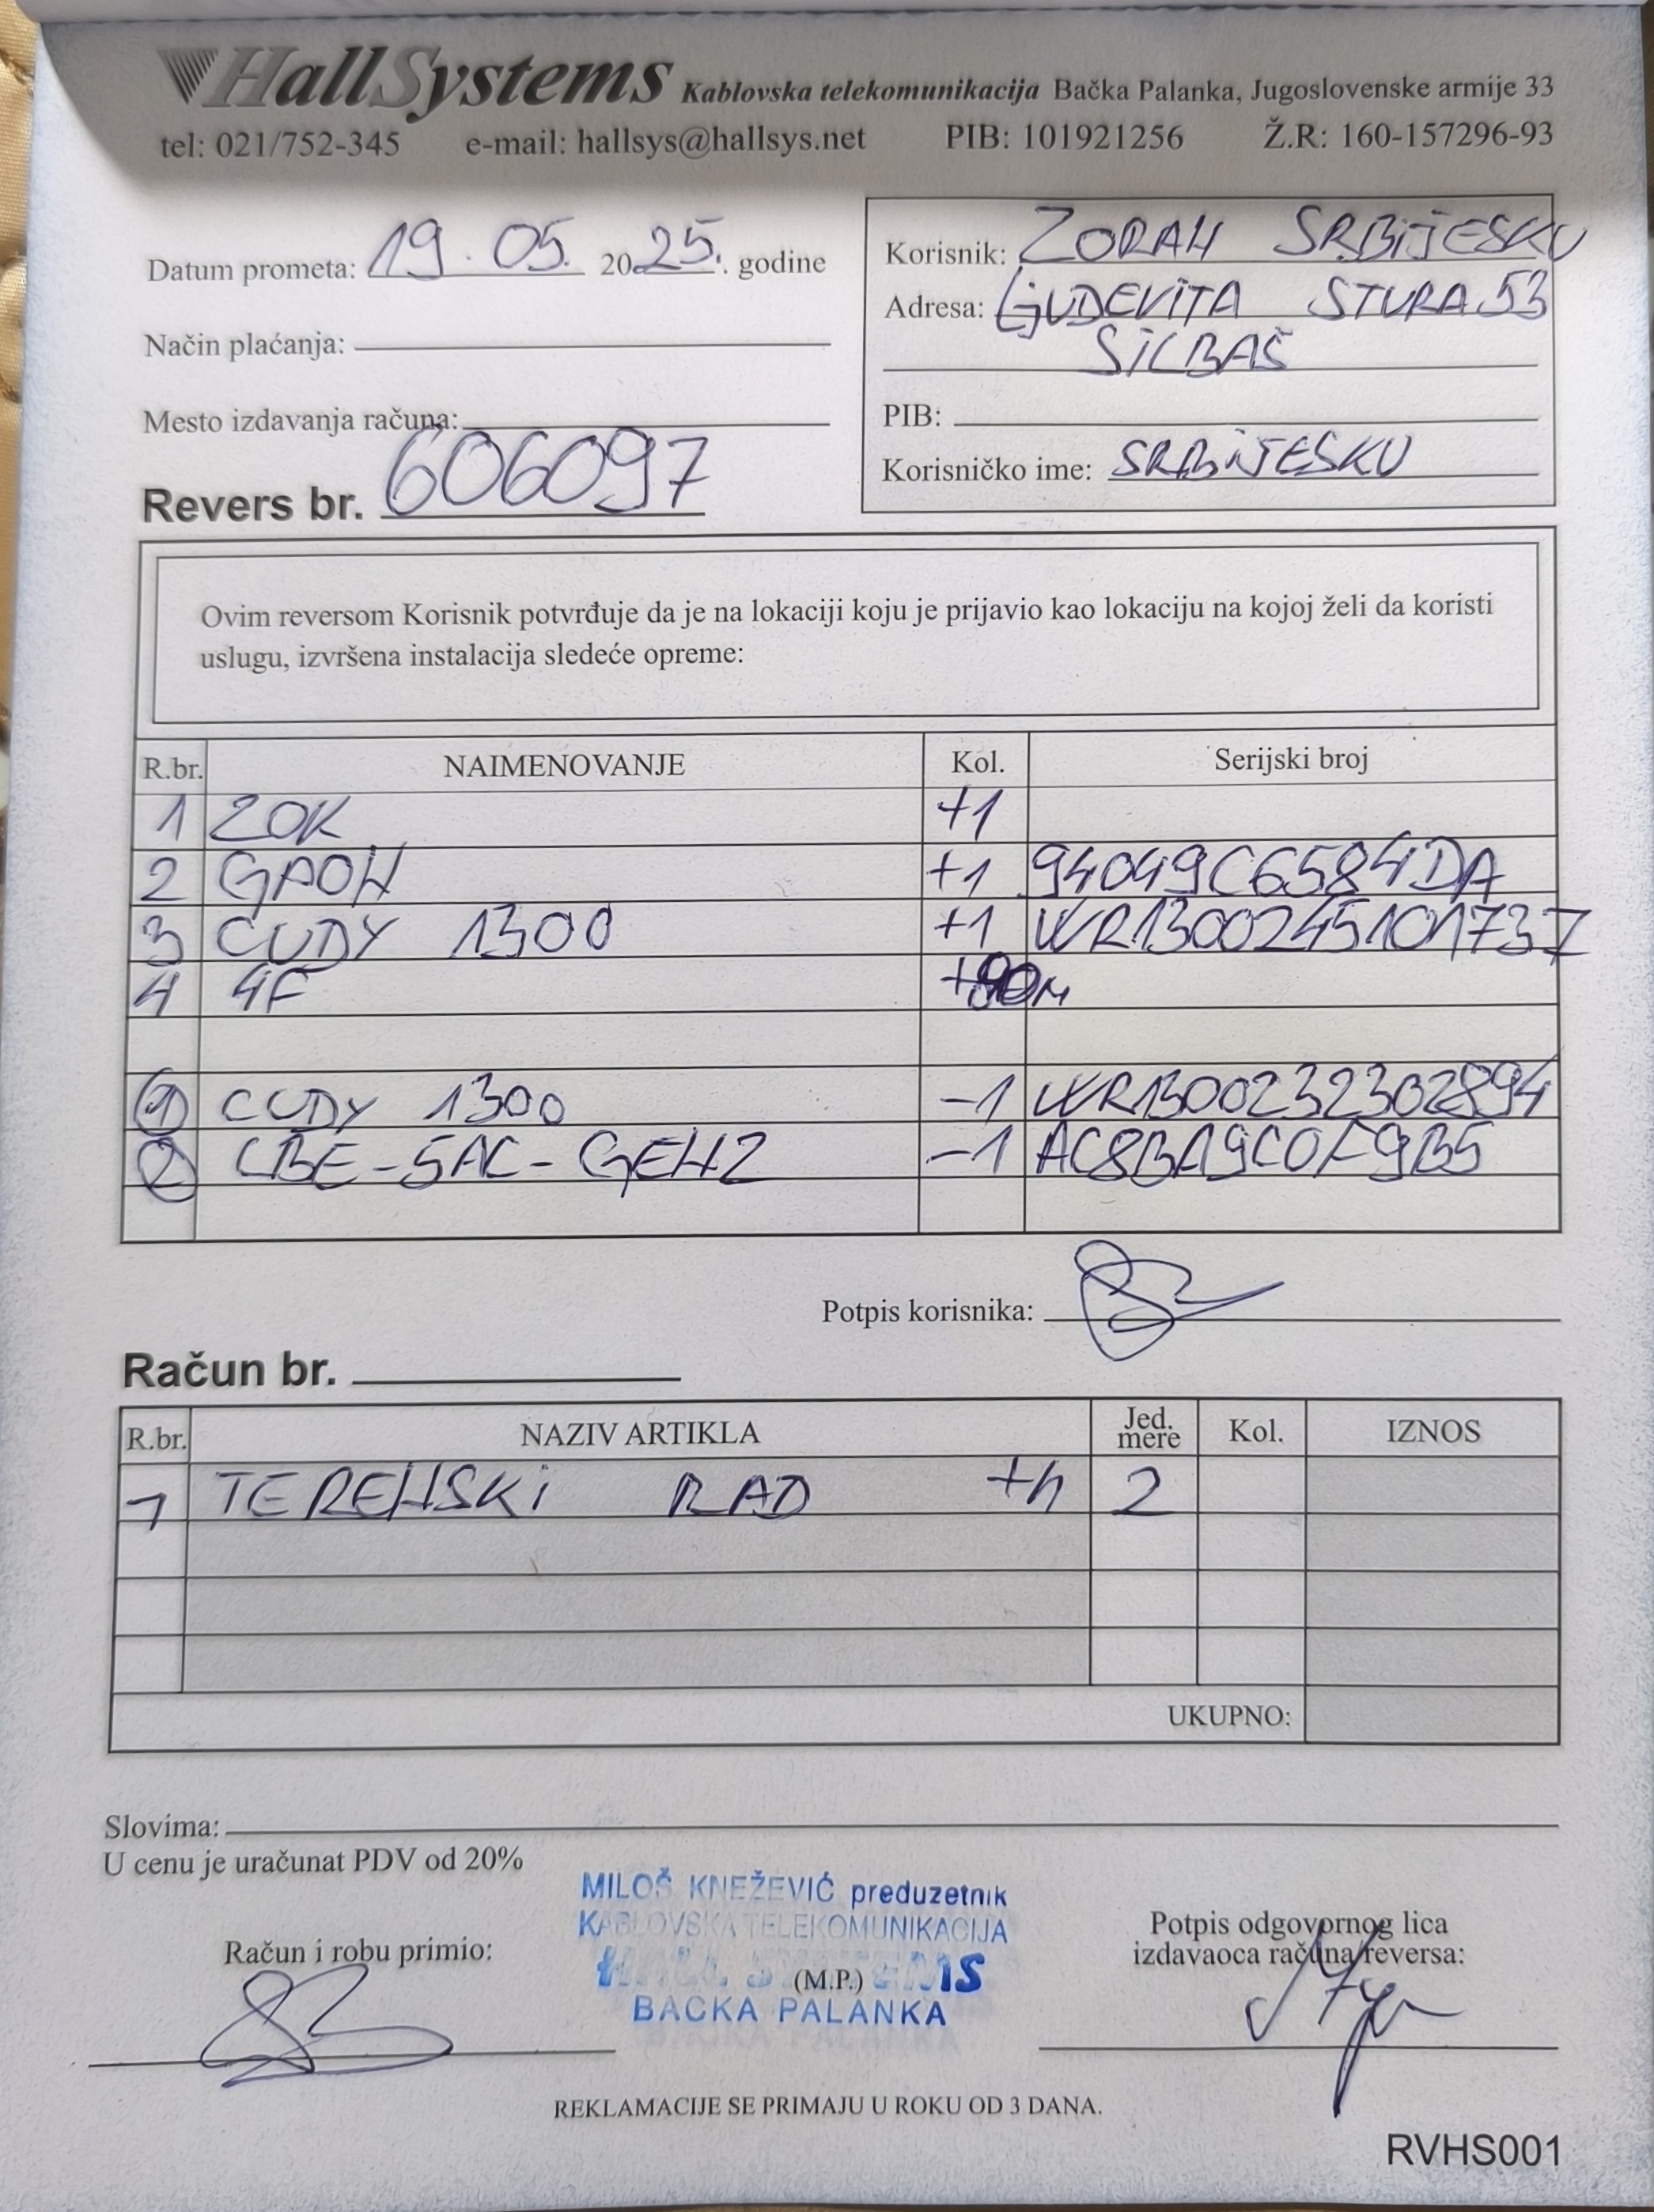 HallSystems Kablovska telekomunikacija Bačka Palanka, Jugoslovenske armije 33
tel: 021/752-345 e-mail: hallsys@hallsys.net PIB: 101921256 Ž.R: 160-157296-93
Datum prometa: 19. 05. 2025. godine
Način plaćanja:
Mesto izdavanja računa:
Revers br. 606097
Korisnik: ZORAN SRBIJESKU
Adresa: LJUDEVITA STURA 53
SILBAŠ
PIB:
Korisničko ime: SRBIJESKU
Ovim reversom Korisnik potvrđuje da je na lokaciji koju je prijavio kao lokaciju na kojoj želi da koristi
uslugu, izvršena instalacija sledeće opreme:
R.br. NAIMENOVANJE Kol. Serijski broj
1 ZOK +1
2 GPON +1 94049C6584DA
3 CUDY 1300 +1 WR1300245101737
4 4F
1 CUDY 1300 -1 WR1300232302894
2 LBE-5AC-GEN2 -1 AC8BA9C0F9B5
Potpis korisnika:
Račun br.
R.br. NAZIV ARTIKLA Jed. mere Kol. IZNOS
1 TERENSKI RAD +h 2
UKUPNO:
Slovima:
U cenu je uračunat PDV od 20%
MILOŠ KNEŽEVIĆ preduzetnik
KABLOVSKA TELEKOMUNIKACIJA
HALL SYSTEMS
(M.P.)
BAČKA PALANKA
Račun i robu primio:
Potpis odgovornog lica
izdavaoca računa/reversa:
REKLAMACIJE SE PRIMAJU U ROKU OD 3 DANA.
RVHS001